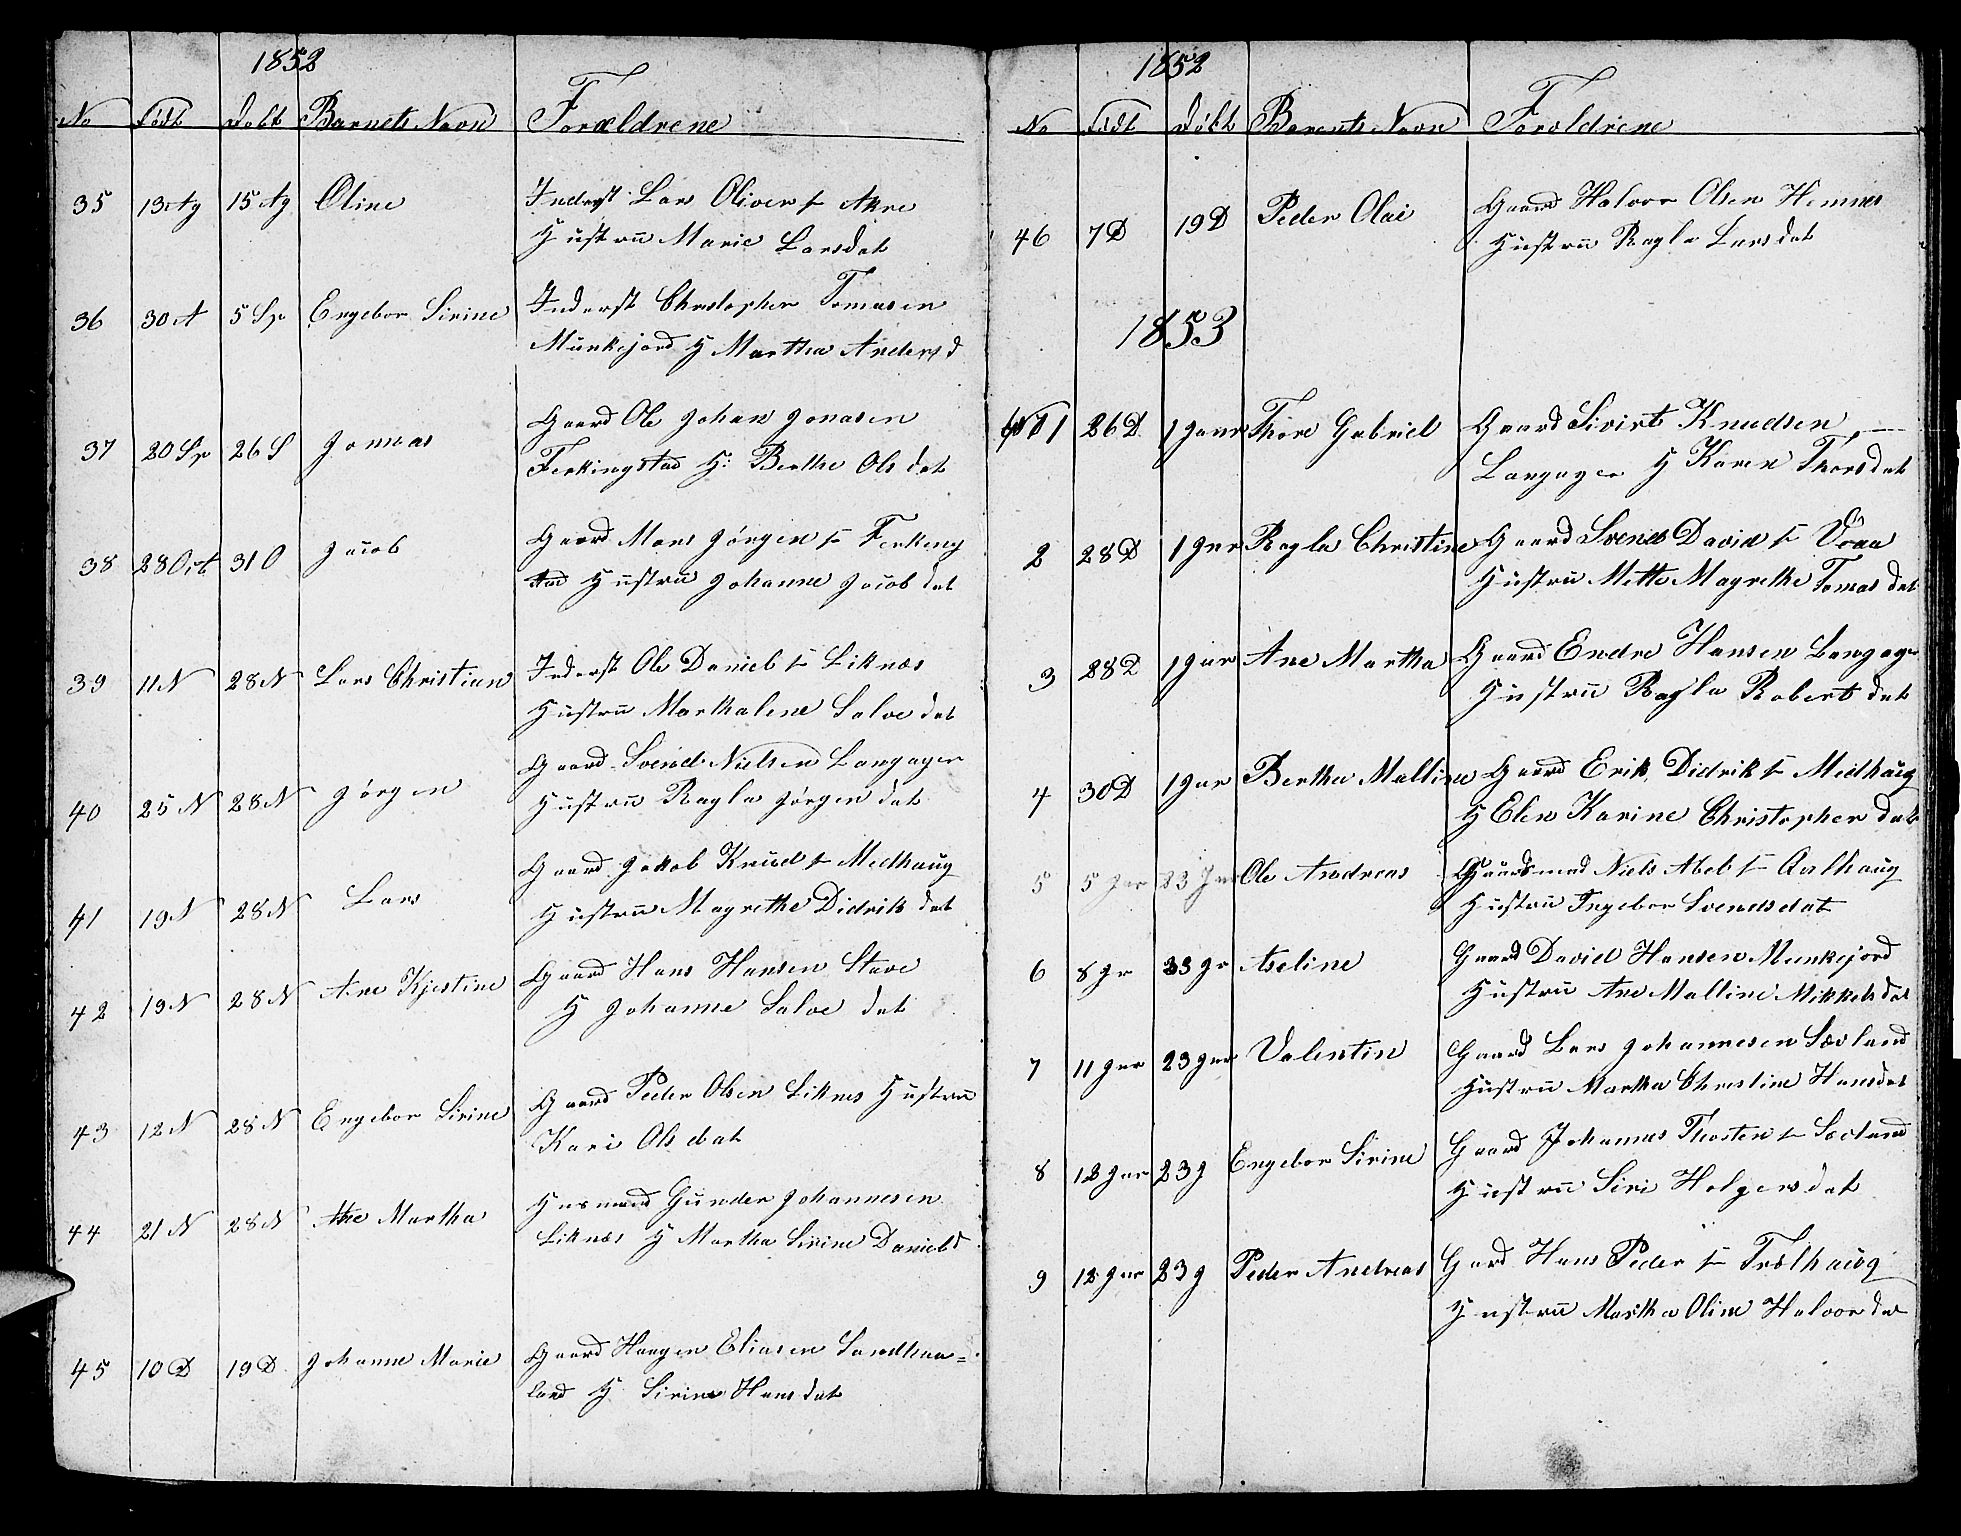 1852
No Født Døbt Barnets Navn Forældrene
35 13 Ag 15 Ag Oline Inderst Lars Olivers f Akre
Hustru Marie Larsdat
36 30 A 5 Sp Engebor Sirine Inderst Christopher Tomasen
Munkejord H Martha Anders d
37 20 Sp 26 S Jonnas Gaard Ole Johan Jonasen
Ferkingstad H: Berthe Ols dat
38 28 Oct 31 O Jacob Gaard Mons Jørgen f Ferking
stad Hustru Johanne Jacob dat
39 11 N 28 N Lars Christian Inderst Ole Daniels f Liknæs
Hustru Marthalene Salve dat
40 25 N 28 N Jørgen Gaard Svend Nielsen Langager
Hustru Ragla Jørgen dat
41 19 N 28 N Lars Gaard Jakob Knud f Medhaug
Hustru Magrethe Didriks dat
42 19 N 28 N Ane Kjestine Gaard Hans Hansen Stave
H Johanne Salve dat
43 12 N 28 N Engebor Sirine Gaard Peder Olsen Liknes Hustru
Kari Olsdat
44 21 N 28 N Ane Martha Husmand Gunder Johannesen
Liknæs H Martha Sirine Daniels d
45 10 D 19 D Johanne Marie Gaard Haagen Eliasen Sandhaa=
land H Sirine Hansdat
1852
No Født Døbt Barents Navn Foroldrene
46 7 D 19 D Peder Olai Gaard Halvor Olsen Hemnes
Hustru Ragla Larsdat
1853
No 1 26 D 1 Jaar Thore Gabriel Gaard Sivirt Knudsen
Langager H Karen Thorsdat
2 28 D 1 Jar Ragla Christine Gaard Svend David f Vraa
Hustru Mette Magrethe Tomas dat
3 28 D 1 Jar Ane Martha Gaard Endre Hansen Langage
Hustru Ragla Robert dat
4 30 D 1 Jar Bertha Malline Gaard Erik Didrik f Medhaug
H Elen Karine Christopher dat
5 5 Jar 23 Jar Ole Andreas Gaardsmad Niels Abel f Aalhaug
Hustru Ingebor Svendsdat
6 8 Jr 23 Jr Aseline Gaard David Hansen Munkejord
Hustru Ane Malline Mikkelsdat
7 11 Jar 23 Jar Valentin Gaard Lars Johannesen Sævland
Hustru Martha Christine Hansdat
8 12 Jar 23 J Engebor Sirine Gaard Johannes Thosten f Sævland
Hustru Siri Holgersdat
9 12 Jar 23 J Peder Andreas Gard Hans Peder f Trælhaug
Hustru Martha Oline Halvor dat